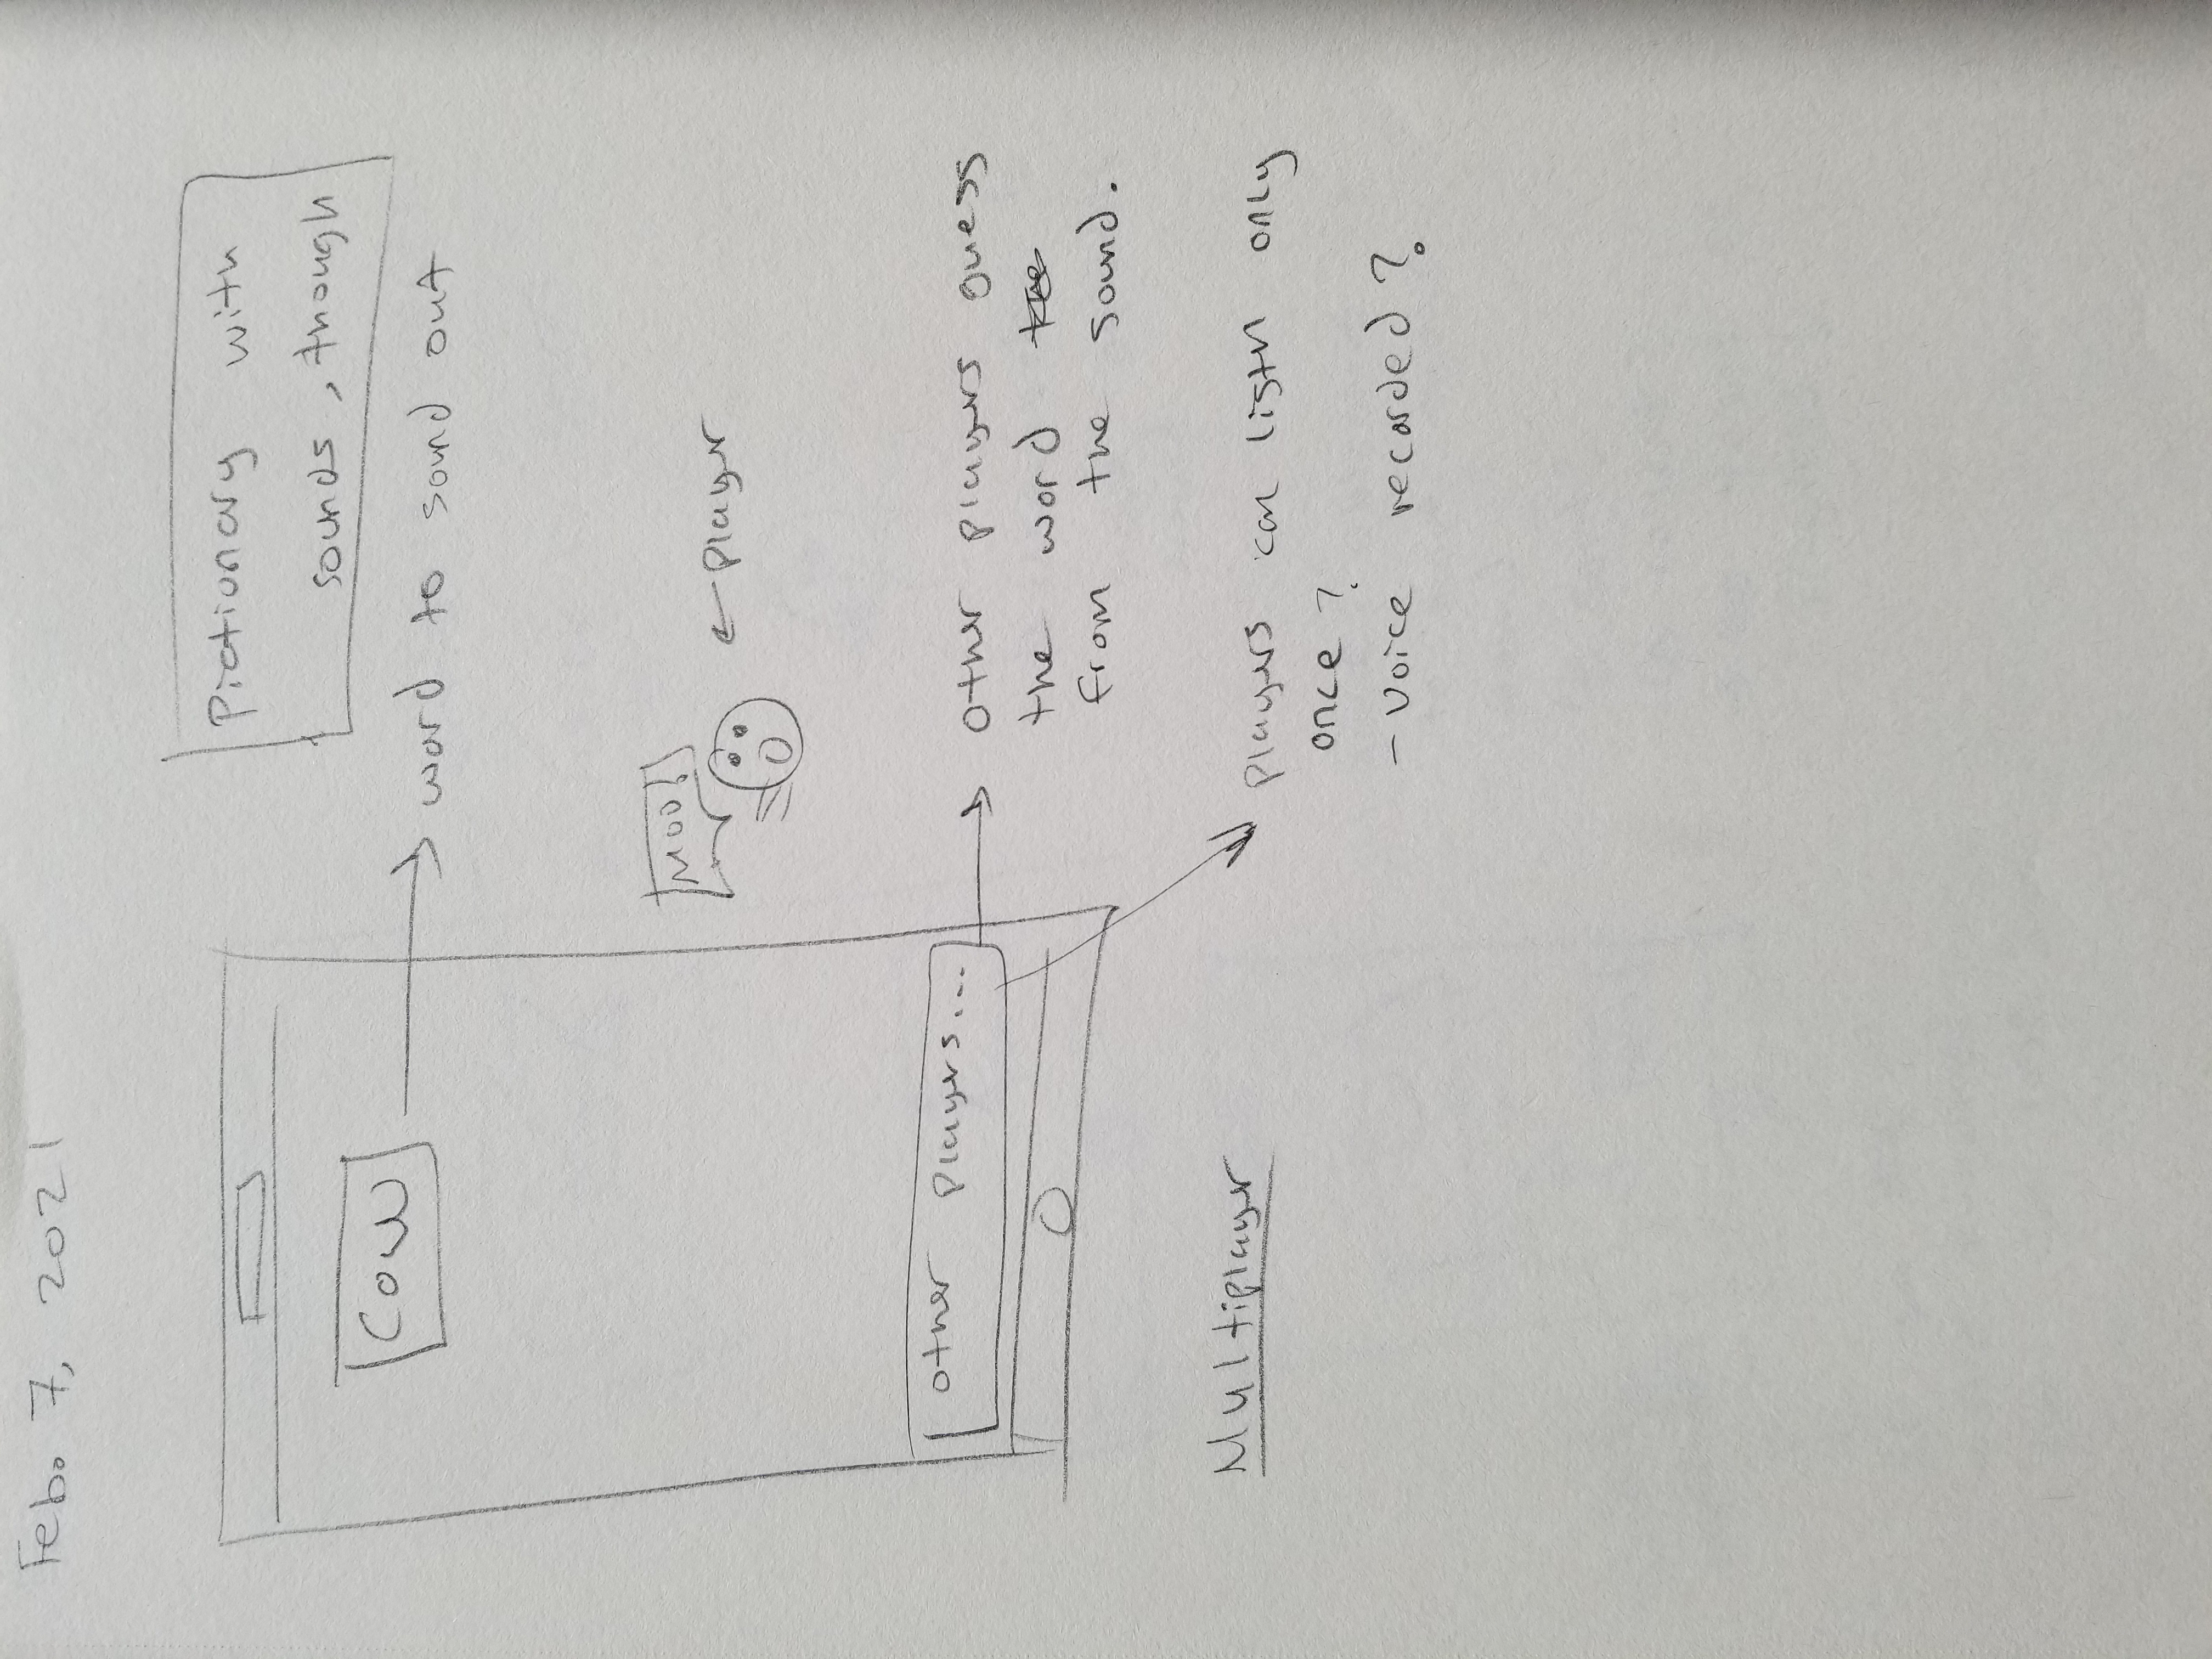 Feb. 7, 2021
Pictionary with
sounds, though
Cow
word to sound out
Moo!
player
other players...
other players guess
the word
from the sound.
players can listn only
once?
- voice recorded?
Multiplayer